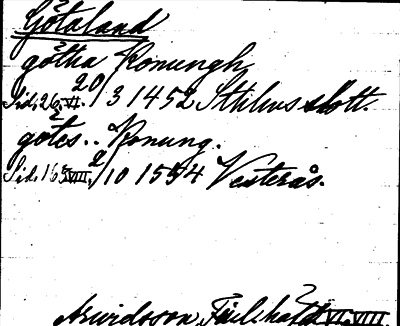 Götaland
götha Konungh
Sid. 26. VI. 20/3 1452 Sthlms slott.
götes.. Konung.
Sid. 163 VIII. 2/10 1554 Vesterås.
Arwidsson, VI. VIII.